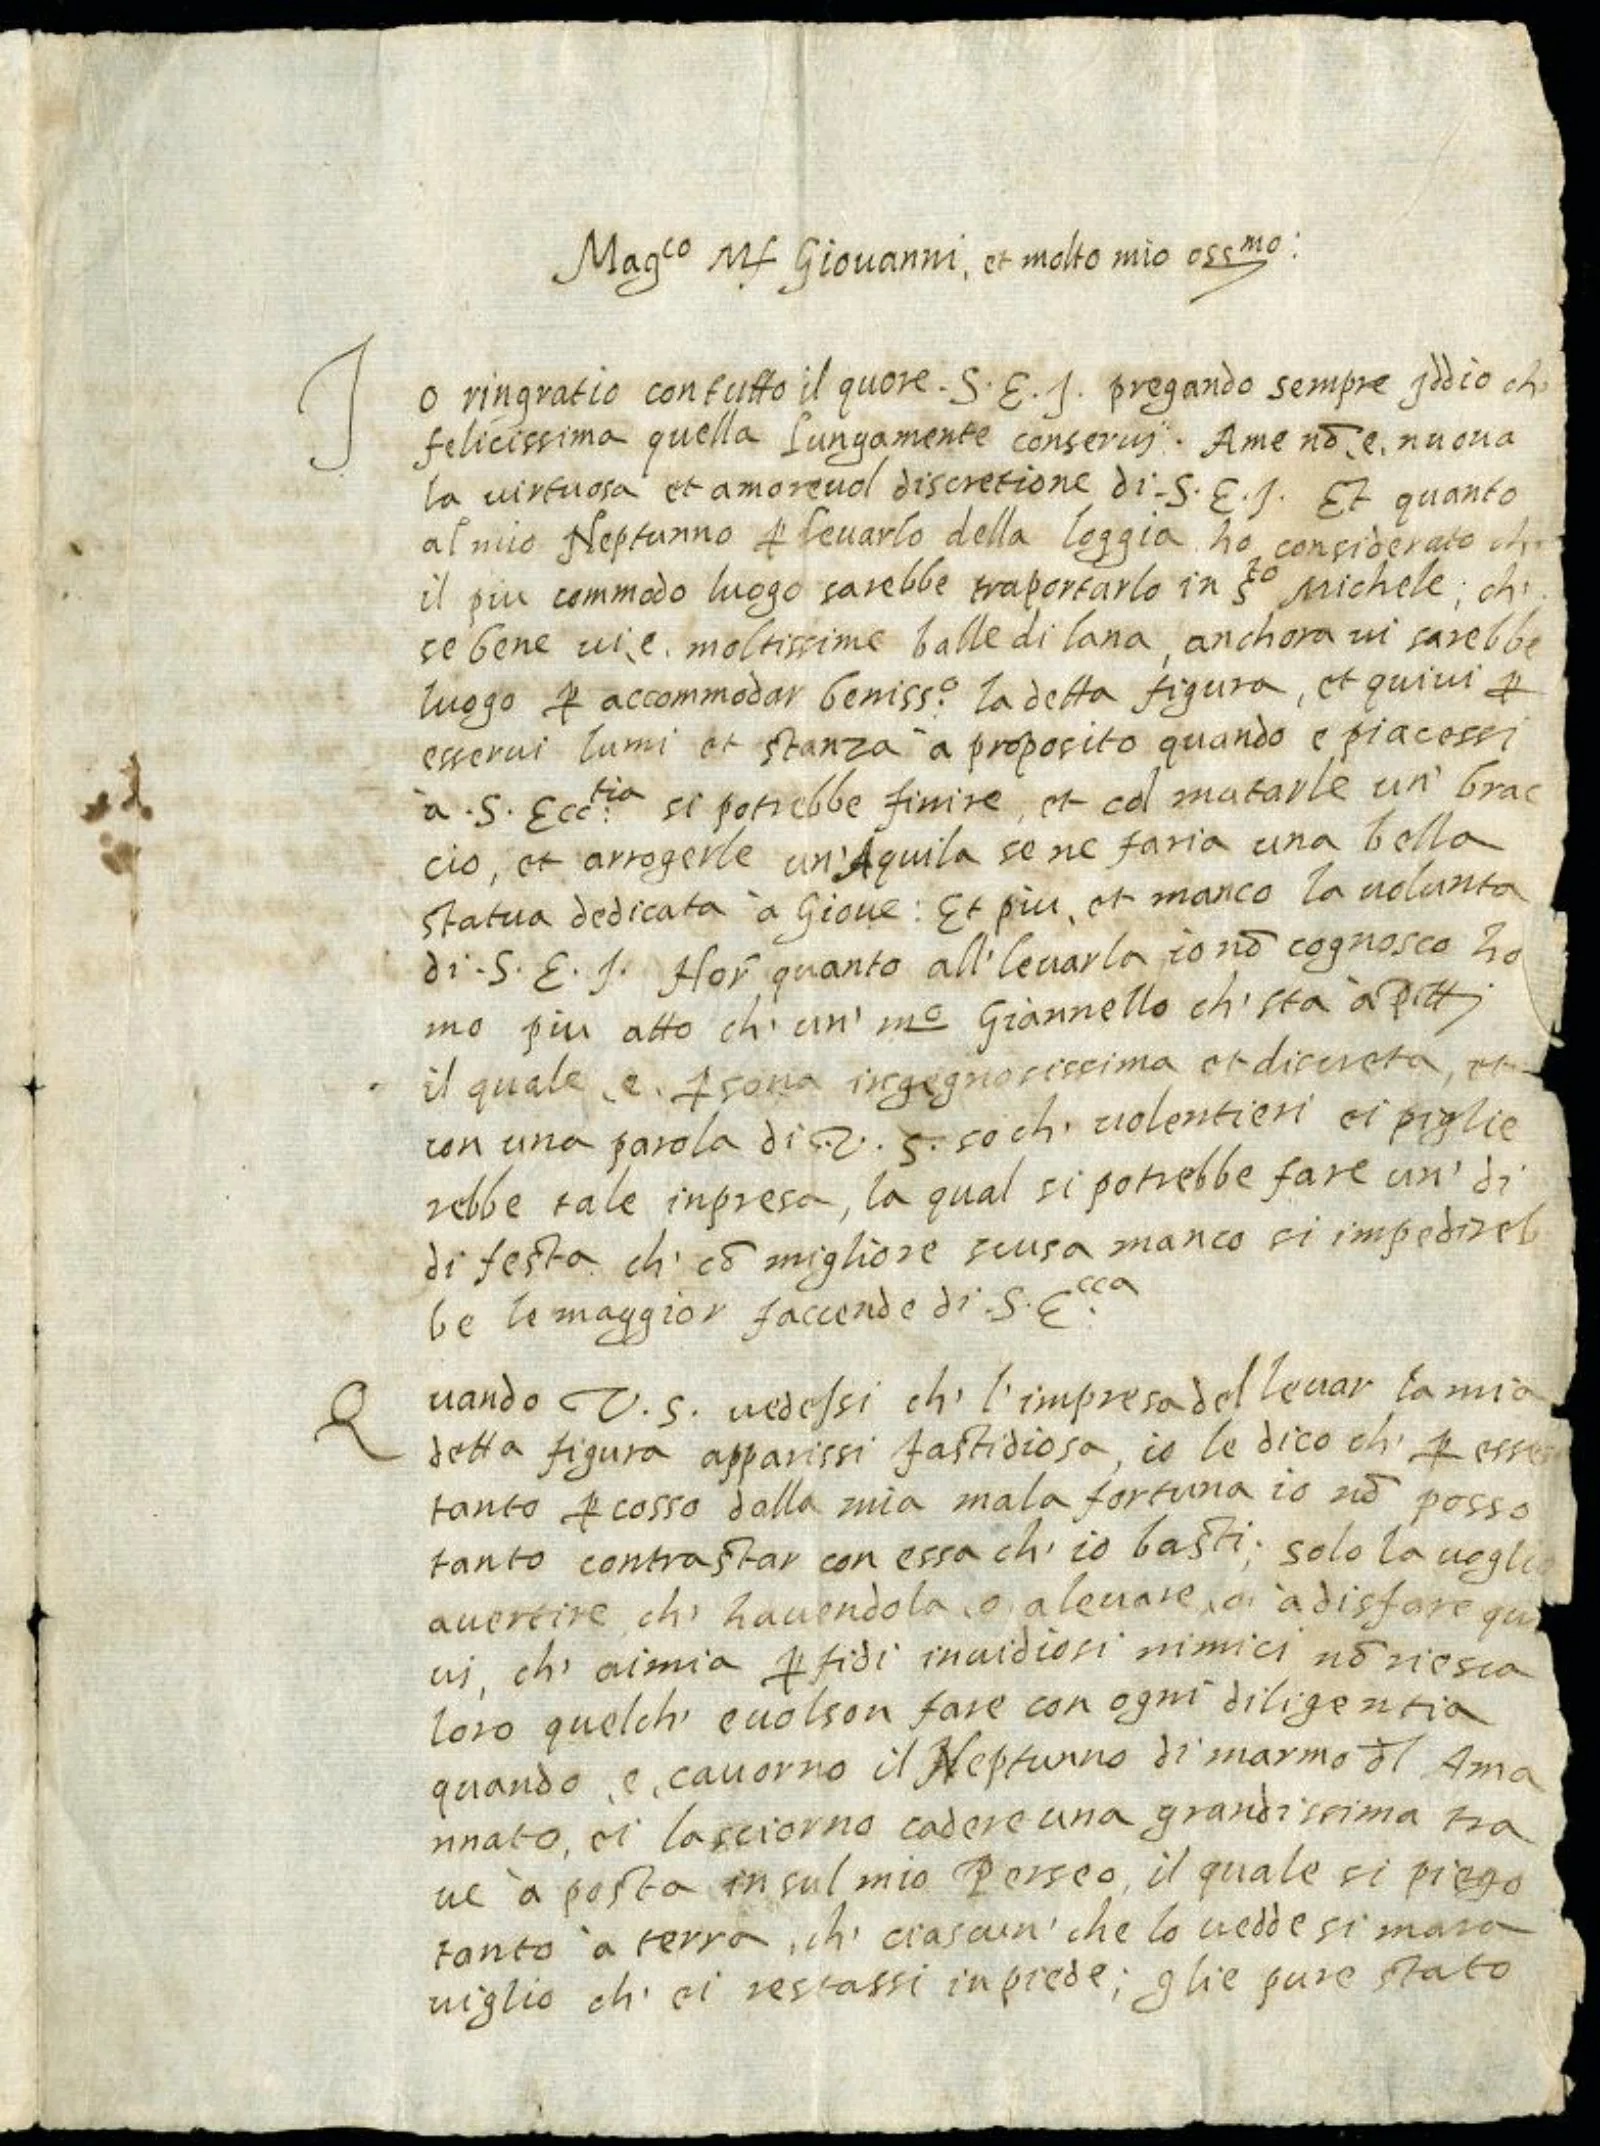 Mag.co Mf Giovanni, et molto mio oss.mo:
Io ringratio con tutto il quore. S. E. J. pregando sempre Jddio ch'
felicissima quella lungamente conseruj. Ame nō, e, nuoua
la uirtuosa et amoreuol discretione di. S. E. J. Et quanto
al mio Neptunno ꝑ leuarlo della loggia ho considerato ch'
il piu commodo luogo sarebbe traportarlo in S.to Michele; ch'
se bene ui, e, moltissime balle di lana, anchora ui sarebbe
luogo ꝑ accommodar beniss.o la detta figura, et quiui ꝑ
esserui lumi et stanza à proposito quando e piacessi
à. S. Ecc.tia si potrebbe finire, et col mutarle un' brac
cio, et arrogerle un' Aquila se ne faria una bella
statua dedicata à Gioue: Et piu, et manco la uolunta
di. S. E. J. Hor quanto all' leuarla io nō cognosco ho
mo piu atto ch' un' m.o Giannello ch' sta à pittj
il quale, e, ꝑsona ingegnosissima et discreta, et
con una parola di. V. S. so ch' uolentieri ei piglie
rebbe tale inpresa, la qual si potrebbe fare un' di
di festa ch' cō migliore scusa manco si impedireb
be le maggior faccende di. S. E.cca
Quando V. S. uedessi ch' l'impresa del leuar la mia
detta figura apparissi fastidiosa, io le dico ch' ꝑ esser
tanto ꝑcosso dalla mia mala fortuna io nō posso
tanto contrastar con essa ch' io basti; solo la uoglio
auertire ch' hauendola, o, a leuare, o, à disfare qui
ui, ch' ai mia ꝑfidi inuidiosi nimici nō riesca
loro quel ch' e uolson fare con ogni diligentia
quando, e, cauorno il Neptunno di marmo dl Ama
nnato, ei lasciorno cadere una grandissima tra
ue à posta in sul mio Perseo, il quale si piego
tanto à terra, ch' ciascun' che lo uedde si mara
uiglio ch' ei restassi in piede; glie pure stato